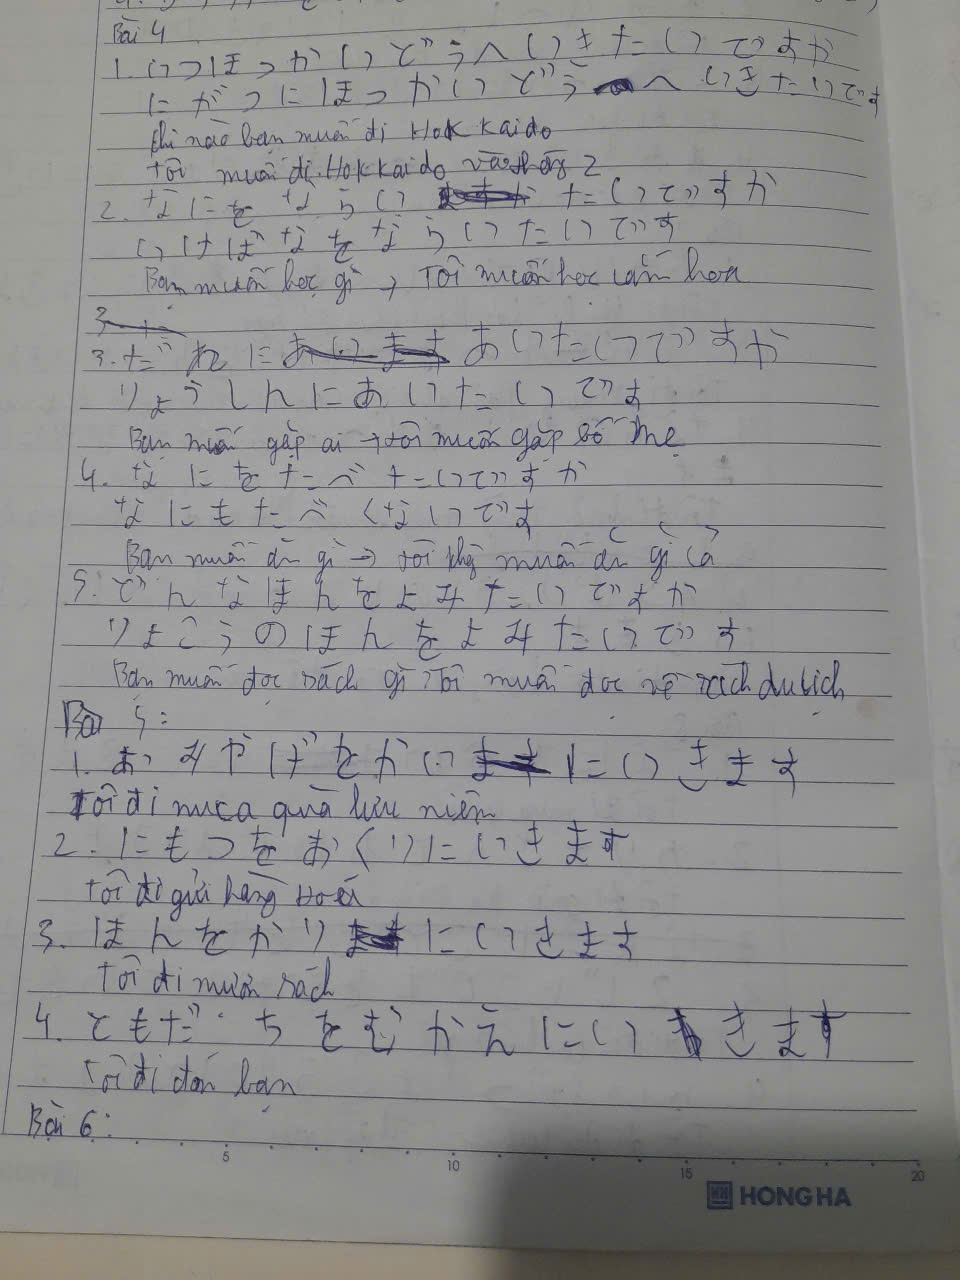 Bài 4
1. いつほっかいどうへいきたいですか
にがつにほっかいどうへいきたいです
Khi nào bạn muốn đi Hokkaido
tôi muốn đi Hokkaido vào tháng 2
2. なにをならいたいですか
いけばなをならいたいです
Bạn muốn học gì → Tôi muốn học cắm hoa
3. だれにあいたいですか
りょうしんにあいたいです
Bạn muốn gặp ai → tôi muốn gặp bố mẹ
4. なにをたべたいですか
なにもたべくないです
Bạn muốn ăn gì → tôi khg muốn ăn gì cả
5. どんなほんをよみたいですか
りょこうのほんをよみたいです
Bạn muốn đọc sách gì Tôi muốn đọc về sách du lịch
Bài 5:
1. おみやげをかいにいきます
Tôi đi mua quà lưu niệm
2. にもつをおくりにいきます
tôi đi gửi hàng
3. ほんをかりにいきます
tôi đi mượn sách
4. ともだちをむかえにいきます
Tôi đi đón bạn
Bài 6:
5 10 15 20
HONG HA